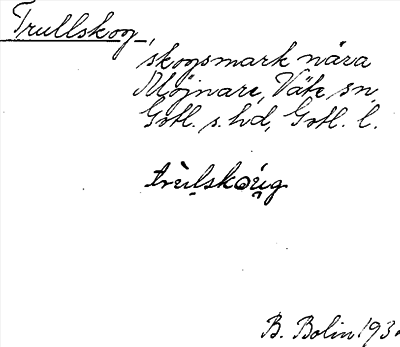 Trullskog,
skogsmark nära
Möjnare, Väte sn,
Gotl. s. hd, Gotl. l.
B. Bolin